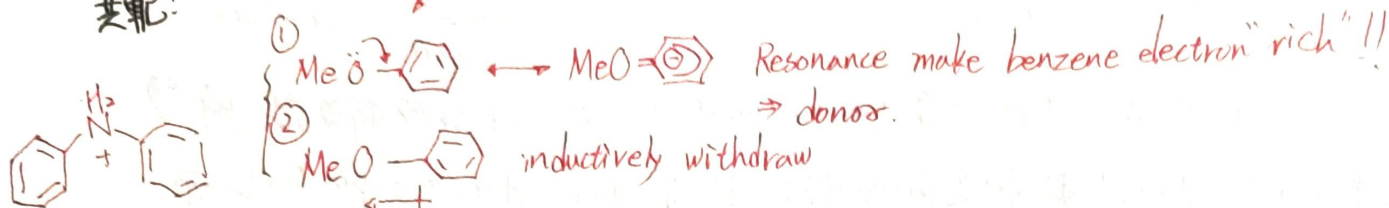 共轭:
① MeÖ ⟷ MeO= ⊖ Resonance make benzene electron "rich"!!
⇒ donor.
H₂
N
+
② MeO— inductively withdraw